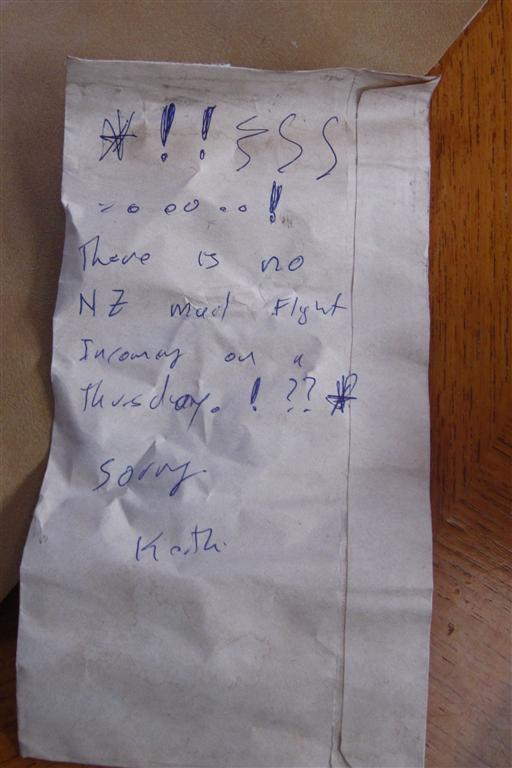 *!! ξ S S
There is no
NZ mail Flight
Incoming on a
Thursday. ! ?? *
Sorry
Keith.